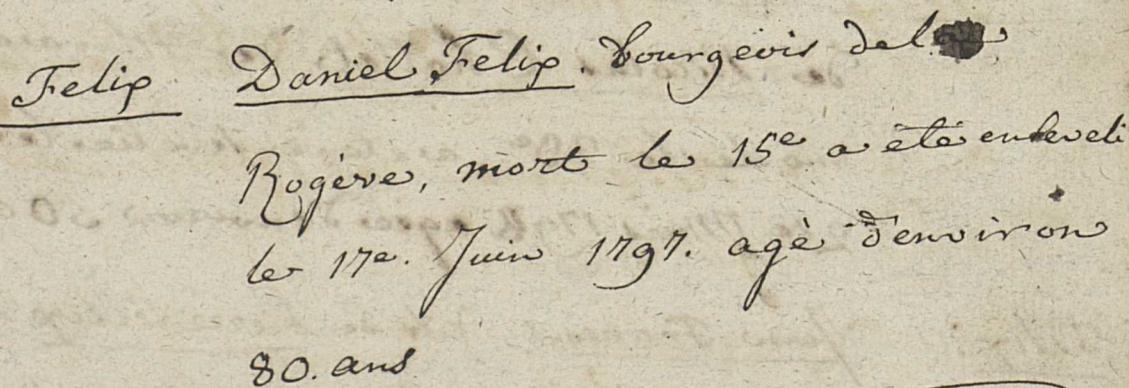 Felix Daniel Felix. bourgeois de la
Rogére, mort le 15e a été enseveli
le 17e. Juin 1797. agé d'environ
80. ans